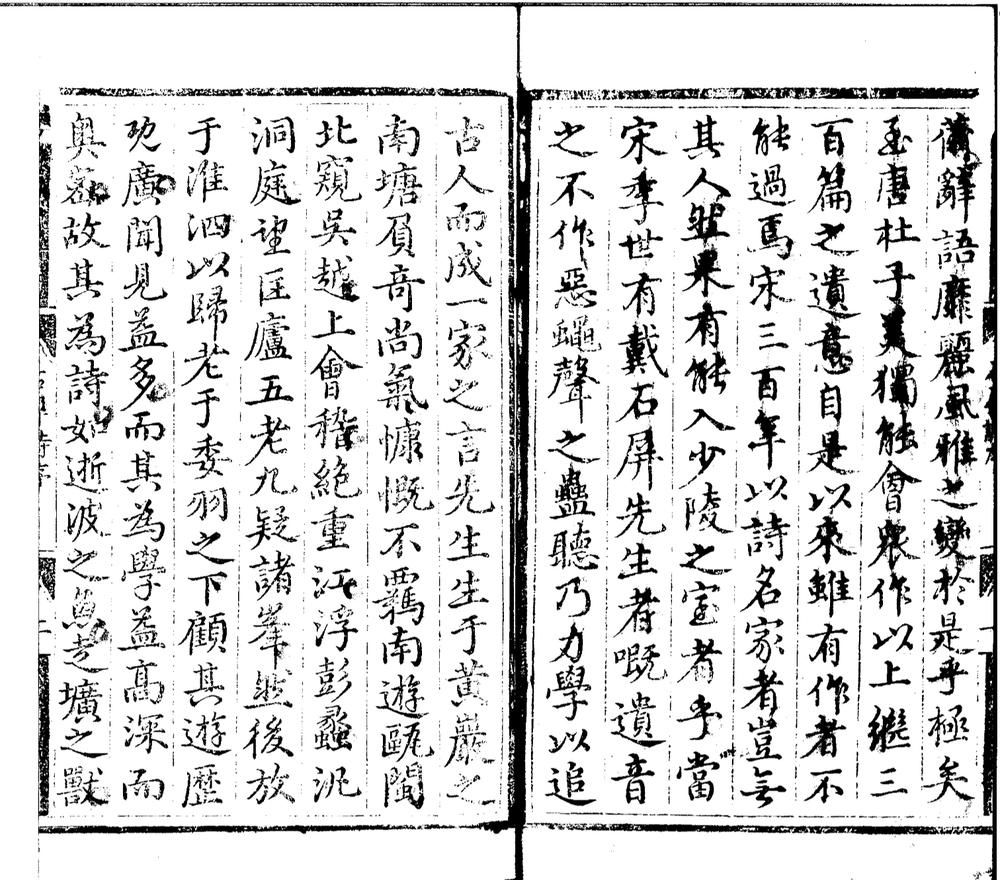 儷辭語靡麗風雅之變於是乎極矣
至唐杜子美獨能會衆作以上繼三
百篇之遺意自是以來雖有作者不
能過焉宋三百年以詩名家者豈無
其人然果有能入少陵之室者乎當
宋季世有戴石屏先生者嘅遺音
之不作惡蠅聲之蠱聽乃力學以追
古人而成一家之言先生生于黃巖之
南塘負奇尚氣慷慨不羈南遊甌閩
北窺吳越上會稽絕重江浮彭蠡泛
洞庭望匡廬五老九疑諸峯然後放
于淮泗以歸老于委羽之下顧其遊歷
旣廣聞見益多而其為學益高深而
奧密故其為詩如逝波之魚走壙之獸